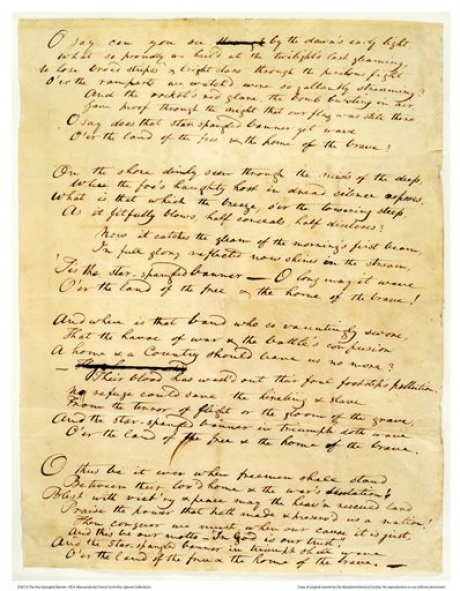 O say can you see ~~through~~ by the dawn's early light
What so proudly we hail'd at the twilight's last gleaming,
Whose broad stripes & bright stars through the perilous fight
O'er the ramparts we watch'd were so gallantly streaming?
And the rocket's red glare, the bomb bursting in air,
Gave proof through the night that our flag was still there
O say does that star-spangled banner yet wave
O'er the land of the free & the home of the brave?
On the shore dimly seen through the mists of the deep,
Where the foe's haughty host in dread silence reposes,
What is that which the breeze, o'er the towering steep,
As it fitfully blows, half conceals, half discloses?
Now it catches the gleam of the morning's first beam,
In full glory reflected now shines in the stream,
'Tis the star-spangled banner — O long may it wave
O'er the land of the free & the home of the brave!
And where is that band who so vauntingly swore,
That the havoc of war & the battle's confusion
A home & a Country should leave us no more?
—
Their blood has wash'd out their foul footstep's pollution.
No refuge could save the hireling & slave
From the terror of flight or the gloom of the grave,
And the star-spangled banner in triumph doth wave
O'er the land of the free & the home of the brave.
O thus be it ever when freemen shall stand
Between their lov'd home & the war's desolation!
Blest with vict'ry & peace may the heav'n rescued land
Praise the power that hath made & preserv'd us a nation!
Then conquer we must, when our cause it is just,
And this be our motto - In God is our trust,
And the star-spangled banner in triumph shall wave
O'er the land of the free & the home of the brave. —